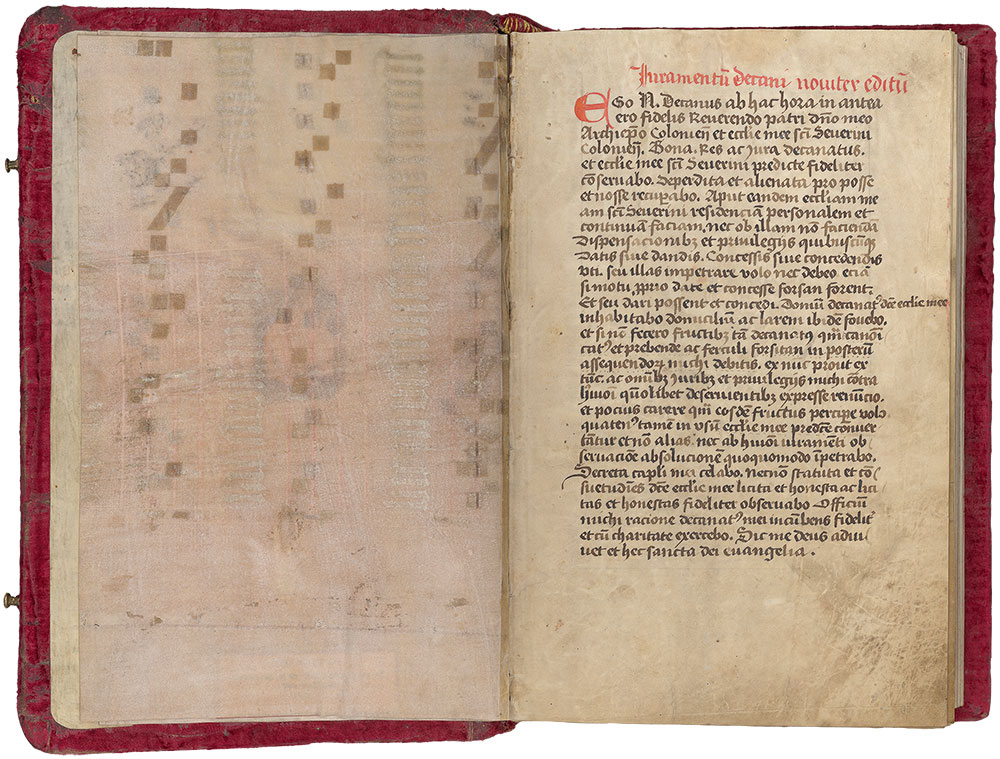 Iuramentū Decani noviter editū
EGo N. Decanus ab hac hora in antea
ero fidelis Reverendo patri dn̄o meo
Archiep̄o Colonien̄ et ecclīe mee scī Severini
Colonien̄. Bona. Res ac Jura decanatus.
et ecclīe mee scī Severini predicte fideliter
cōservabo. Deperdita et alienata pro posse
et nosse recuꝑabo. Aput eandem eccliam me
am scī Severini residenciā personalem et
continuā faciam. nec ob illam nō faciendā
Dispensacionibꝫ et privilegijs quibuscūqꝫ
Datis sive dandis. Concessis sive concedendis
vti. seu illas impetrare volo nec debeo eciā
si motu ꝓprio date et concesse forsan forent.
Et seu dari possent et concedi. Domū decanatꝰ dc̄e ecclīe mee
inhabitabo domicilium ac larem ibidem fovebo.
et si nō fecero fructibꝫ tā decanatꝰ qm̄ canoni
catꝰ et prebende ac ferculi forsitan in posterū
assequendoꝝ michi debitis. ex nūc prout ex
tūc. ac om̄ibꝫ Juribꝫ et privilegijs michi cōtra
hmōi quōlibet deservientibꝫ expresse renūcio.
et pocius carere qm̄ eosdē fructus perciꝑe volo
quatenꝰ tamē in vsū ecclīe mee predc̄e conver
tātur et nō alias. nec ab hmōi iuramēti ob
servaciōe absolucionē quoquomodo īpetrabo.
Decreta capl̄i mei celabo. necnō statuta et cō
suetudīes dc̄e ecclīe mee licita et honesta ac lici
tas et honestas fideliter observabo Officiū
michi racione decanatꝰ mei incūbens fidelitˀ
et cū charitate exercebo. Sic me deus adiu
vet et hec sancta dei euangelia.